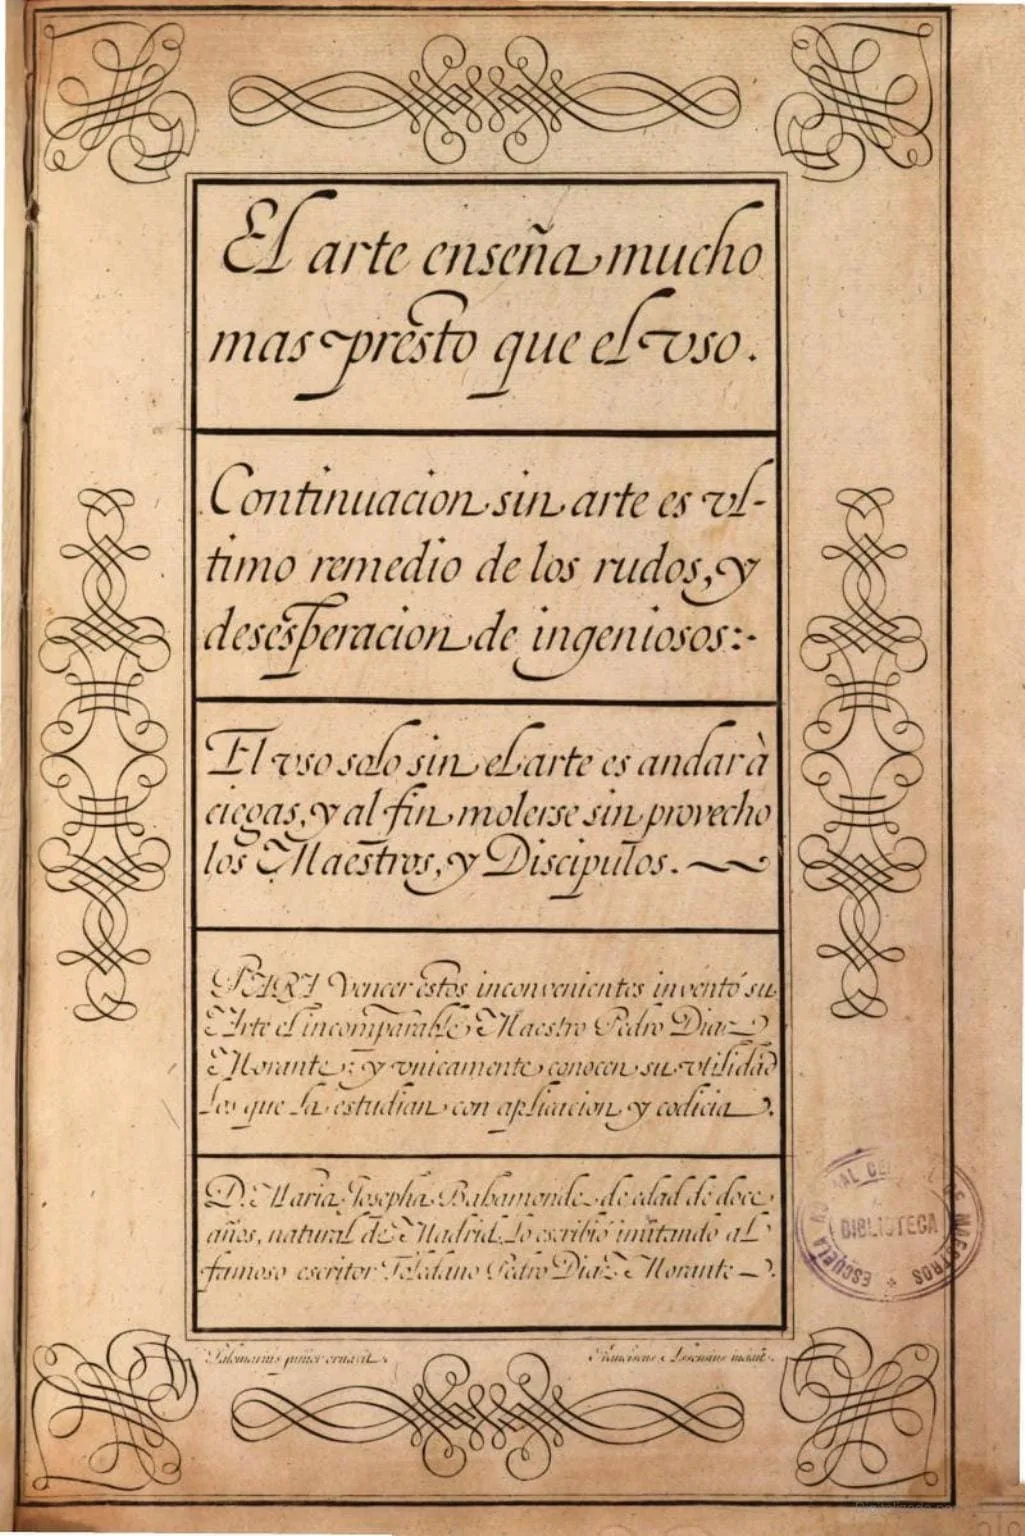 El arte enseña mucho
mas presto que el vso.
Continuacion sin arte es vl-
timo remedio de los rudos, y
desesperacion de ingeniosos:-
El vso solo sin el arte es andar à
ciegas, y al fin molerse sin provecho
los Maestros, y Discipulos.
PARA vencer estos inconvenientes inventó su
Arte el incomparable Maestro Pedro Diaz
Morante; y vnicamente conocen su vtilidad
los que la estudian con aplicacion y codicia.
D. Maria Josepha Bahamonde de edad de doce
años, natural de Madrid lo escribió imitando al
famoso escritor Toledano Pedro Diaz Morante
Palomarius junior ornavit. Franciscus Assensius incidit.
BIBLIOTECA
ESCUELA
MAESTROS